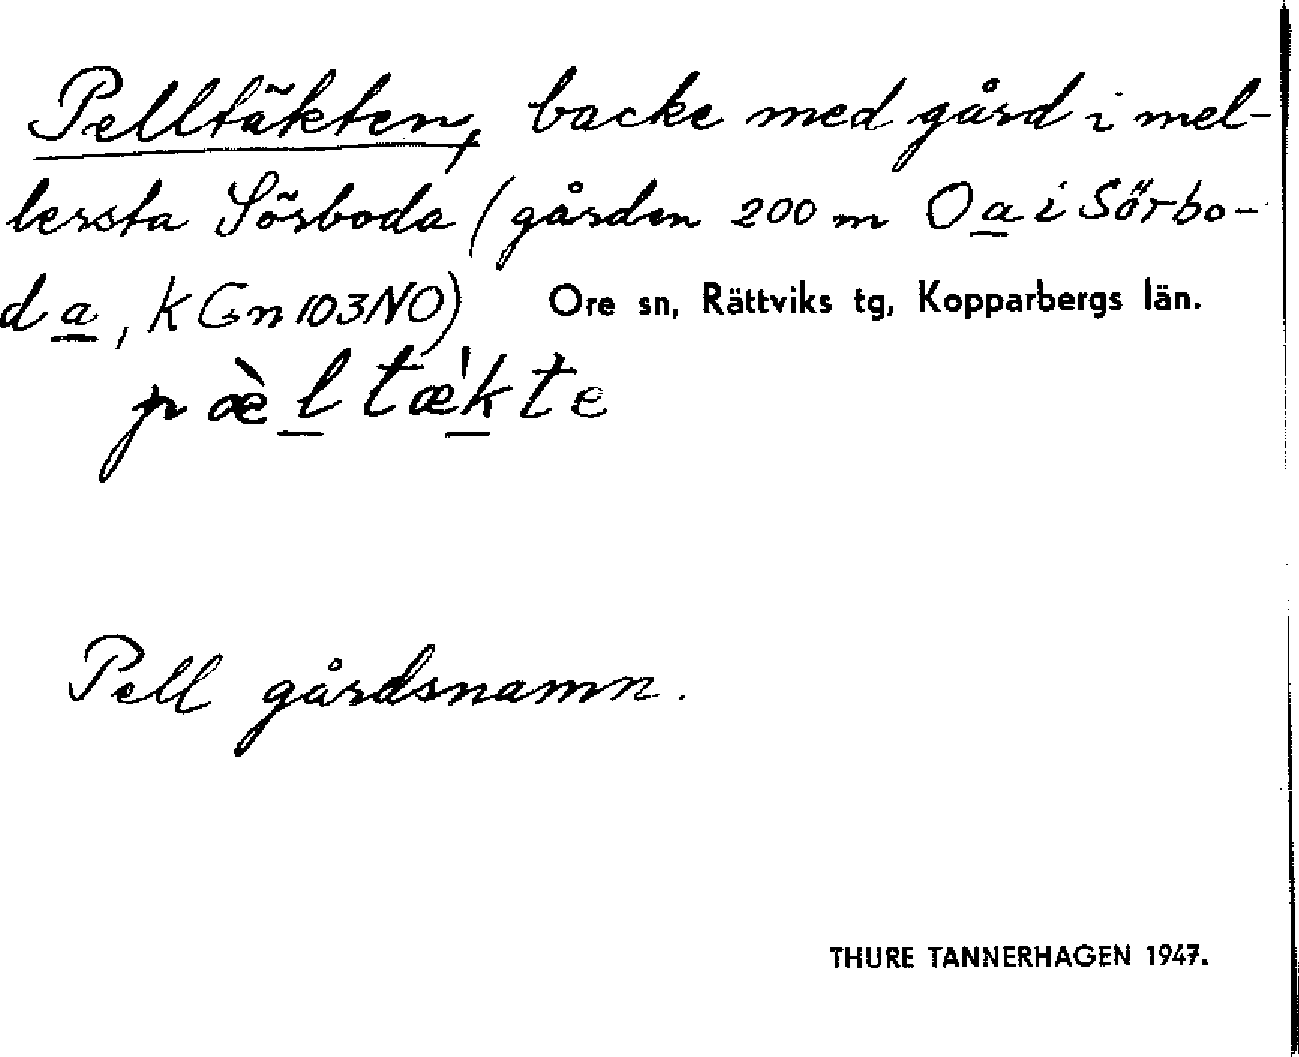 Pelltäkten, backe med gård i mel-
lersta Sörboda (gården 200 m O a i Sörbo-
da, KGn 103NO) Ore sn, Rättviks tg, Kopparbergs län.
pæ̀ltæ̍kte
Pell gårdsnamn.
THURE TANNERHAGEN 1947.